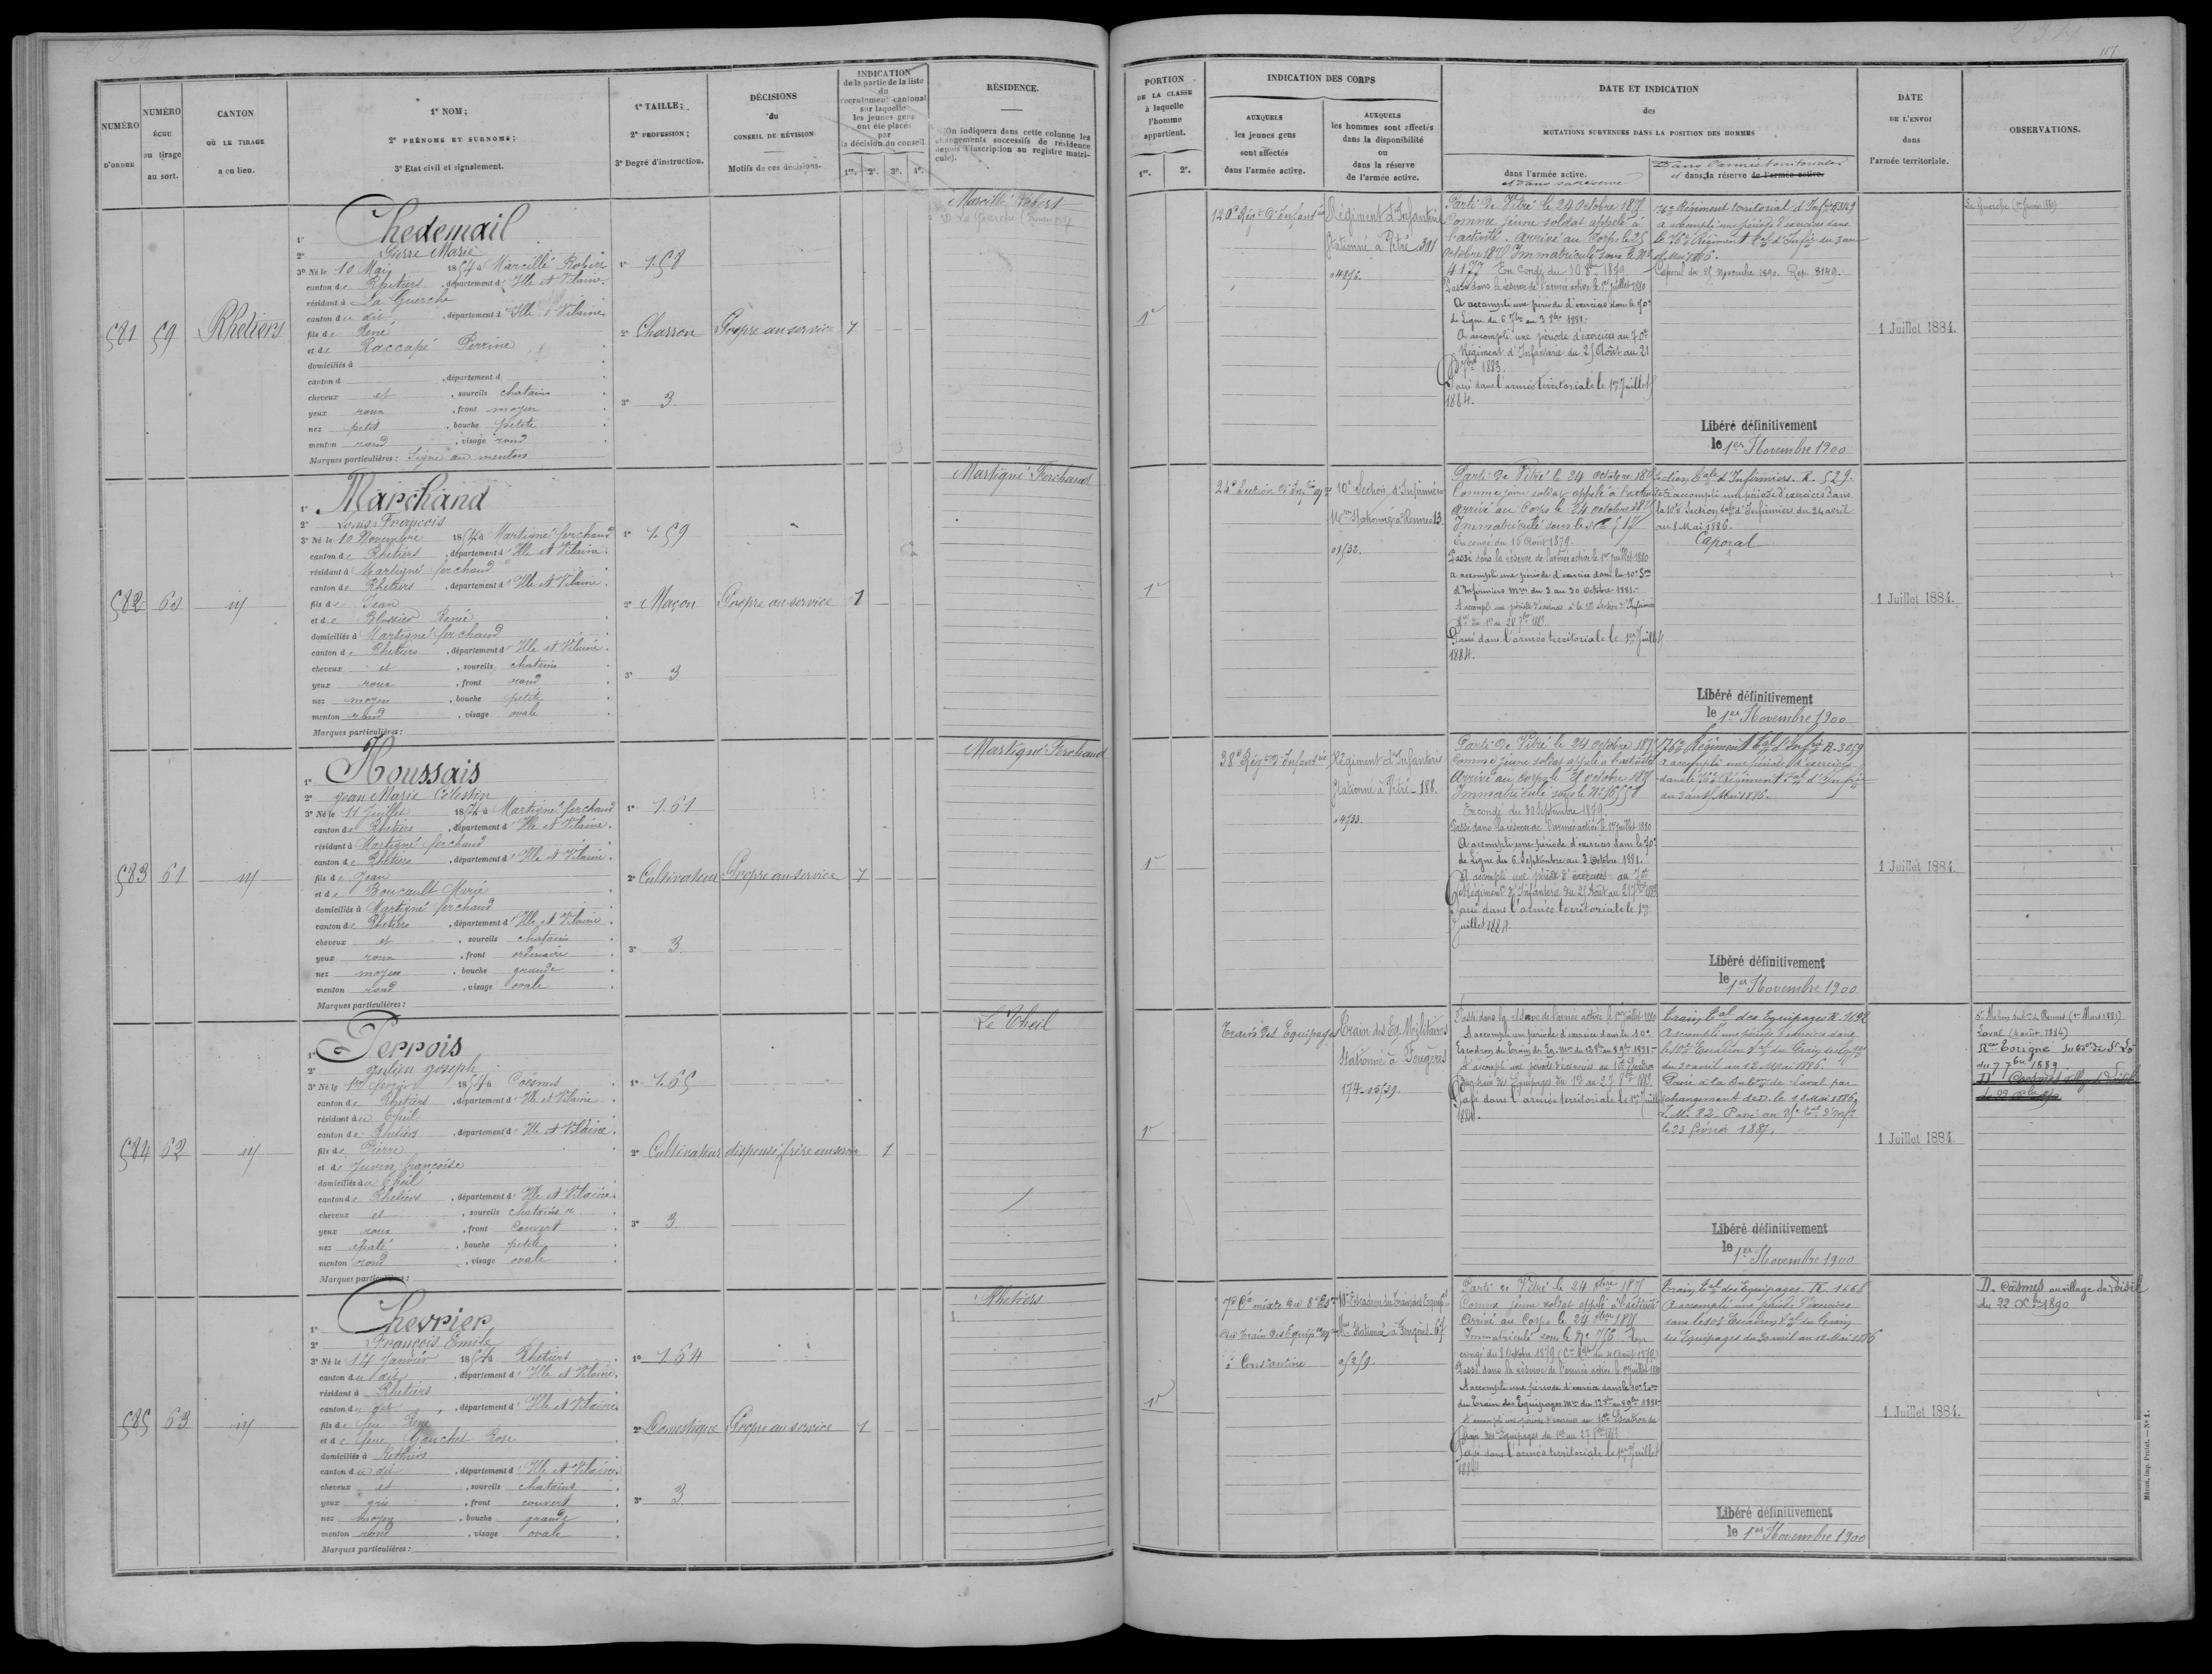 117
NUMÉRO
D'ORDRE
NUMÉRO
ÉCHU
au tirage
au sort.
CANTON
OÙ LE TIRAGE
a eu lieu.
1° NOM;
2° PRÉNOMS ET SURNOMS;
3° Etat civil et signalement.
1° TAILLE;
2° PROFESSION;
3° Degré d'instruction.
DÉCISIONS
du
CONSEIL DE RÉVISION
Motifs de ces décisions.
INDICATION
de la partie de la liste
du
recrutement cantonal
sur laquelle
les jeunes gens
ont été placés
par
la décision du conseil
1re. 2e. 3e. 4e.
RÉSIDENCE.
(On indiquera dans cette colonne les
changements successifs de résidence
depuis l'inscription au registre matri-
cule).
PORTION
DE LA CLASSE
à laquelle
l'homme
appartient.
1re. 2e.
INDICATION DES CORPS
AUXQUELS
les jeunes gens
sont affectés
dans l'armée active.
AUXQUELS
les hommes sont affectés
dans la disponibilité
ou
dans la réserve
de l'armée active.
DATE ET INDICATION
des
MUTATIONS SURVENUES DANS LA POSITION DES HOMMES
dans l'armée active.
et dans sa réserve
Dans l'armée territoriale
et dans sa réserve de l'armée active.
DATE
DE L'ENVOI
dans
l'armée territoriale.
OBSERVATIONS.
581 59 Rhetiers
1° Chedemail
2° Pierre Marie
3° Né le 10 Mai 1854 à Marcillé Robert
canton de Rhetiers, département d'Ille et Vilaine.
résidant à La Guerche
canton du dit, département d'Ille et Vilaine
fils de René
et de Raccapé Perrine
domiciliés à
canton d , département d
cheveux et , sourcils chatains
yeux roux , front moyen
nez petit , bouche petite
menton rond , visage rond
Marques particulières: Signe au menton
1° 1.58
2° Charron
3° 3
Propre au service 1
Marcillé Robert
D. La Guerche
1re
120e Régt d'Infanterie
Régiment d'Infanterie
Stationné à Vitré 301
Parti de Vitré le 24 Octobre 1875
Comme jeune soldat appelé à
l'activité. Arrivé au Corps le 25
Octobre 1875 Immatriculé sous le No
4177 En congé du 10 8bre 1879
Passé dans la réserve de l'armée active le 1er juillet 1880
A accompli une période d'exercices dans le 70e
de Ligne du 6 7bre au 3 8bre 1881.
A accompli une période d'exercices au 70e
Régiment d'Infanterie du 25 Août au 21
7bre 1883.
Passé dans l'armée territoriale le 1er Juillet
1884.
76e Régiment territorial d'Infie R. 3149
A accompli une période d'exercices dans
le 76e Régiment tal d'Infie du 3 au
15 Mai 1886.
Caporal du 25 Novembre 1890. Rep. 3149.
Libéré définitivement
le 1er Novembre 1900
1 Juillet 1884.
582 60 id
1° Marchand
2° Louis François
3° Né le 10 Novembre 1854 à Martigné ferchaud
canton de Rhetiers, département d'Ille et Vilaine.
résidant à Martigné ferchaud
canton de Rhetiers, département d'Ille et Vilaine.
fils de Jean
et de Blossier Renée
domiciliés à Martigné ferchaud
canton de Rhetiers, département d'Ille et Vilaine.
cheveux et , sourcils chatains
yeux roux , front rond
nez moyen , bouche petite
menton rond , visage ovale
Marques particulières:
1° 1.59
2° Maçon
3° 3
Propre au service 1
Martigné Ferchaud
1re
24e Section d'Infirs
10e Section d'Infirmiers
Mres Stationnée à Rennes 13
Parti de Vitré le 24 Octobre 1875
Comme jeune soldat appelé à l'activité
Arrivé au Corps le 24 octobre 1875
Immatriculé sous le No 517
En congé du 16 Août 1879.
Passé dans la réserve de l'armée active le 1er juillet 1880
A accompli une période d'exercice dans la 10e Son
d'Infirmiers Mres du 3 au 30 Octobre 1881.
Passé dans l'armée territoriale le 1er Juillet
1884.
Section tale d'Infirmiers. R. 529.
A accompli une période d'exercices dans
la 10e Section tale d'Infirmiers du 24 avril
au 8 Mai 1886.
Caporal
Libéré définitivement
le 1er Novembre 1900
1 Juillet 1884.
583 61 id
1° Houssais
2° Jean Marie Célestin
3° Né le 11 Juillet 1854 à Martigné ferchaud
canton de Rhetiers, département d'Ille et Vilaine.
résidant à Martigné ferchaud
canton de Rhetiers, département d'Ille et Vilaine.
fils de Jean
et de Boucault Marie
domiciliés à Martigné ferchaud
canton de Rhetiers, département d'Ille et Vilaine.
cheveux et , sourcils chatains
yeux roux , front ordinaire
nez moyen , bouche grande
menton rond , visage ovale
Marques particulières:
1° 1.61
2° Cultivateur
3° 3
Propre au service 1
Martigné Ferchaud
1re
38e Régt d'Infanterie
Régiment d'Infanterie
Stationné à Vitré 188.
04733.
Parti de Vitré le 24 octobre 1875
Comme jeune soldat appelé à l'activité
Arrivé au Corps le octobre 1875
Immatriculé sous le No
En congé du 30 Septembre 1879.
Passé dans la réserve de l'armée active le 1er juillet 1880
A accompli une période d'exercices dans le 70e
de Ligne du 6 Septembre au 3 Octobre 1881.
A accompli une période d'exercices au 70e
Régiment d'Infanterie du 25 Août au 21 7bre 1883
Passé dans l'armée territoriale le 1er
Juillet 1884.
76e Régiment tal d'Infie R. 3059
A accompli une période d'exercices
dans le 76e Régiment tal d'Infie
du 3 au 15 Mai 1886.
Libéré définitivement
le 1er Novembre 1900
1 Juillet 1884.
584 62 id
1° Perrois
2° Julien Joseph
3° Né le 1er février 1854 à Coësmes
canton de Rhetiers, département d'Ille et Vilaine
résidant au Theil
canton de Rhetiers, département d'Ille et Vilaine.
fils de Pierre
et de Juven françoise
domiciliés au Theil
canton de Rhetiers, département d'Ille et Vilaine.
cheveux et , sourcils chatains
yeux roux , front couvert
nez épaté , bouche petite
menton rond , visage ovale
Marques particulières:
1° 1.65
2° Cultivateur
3° 3
dispensé frère au service 1
Le Theil
1re
Train des Equipages
Train des Eq. Militaires
Stationné à Fougères
174
Passé dans la réserve de l'armée active le 1er juillet 1880
A accompli une période d'exercice dans le 10e
Escadron du Train des Eq. Mres du 12 8bre au 8 9bre 1881.
Passé dans l'armée territoriale le 1er Juillet
1884.
Train tal des Equipages R. 1692
A accompli une période d'exercices dans
le 10e Escadron tal du Train des Eqges
du 30 avril au 12 Mai 1886.
Passé à la Subon de Laval par
changement de D. le 12 Mai 1886.
L. M. 82. Passé au 25e tal d'Infie
le 23 février 1887.
Libéré définitivement
le 1er Novembre 1900
1 Juillet 1884
Laval (4 août 1884)
Torigné
1889
585 63 id
1° Chevrier
2° François Emile
3° Né le 14 Janvier 1854 à Rhetiers
canton du dit, département d'Ille et Vilaine.
résidant à Rhetiers
canton du dit, département d'Ille et Vilaine
fils de feu René
et de feue Gauchet Rose
domiciliés à Rethiers
canton du dit, département d'Ille et Vilaine.
cheveux et , sourcils chatains
yeux gris , front couvert
nez moyen , bouche grande
menton rond , visage ovale
Marques particulières:
1° 1.64
2° Domestique
3° 3
Propre au service 1
Rhetiers
1re
7e Cie mixte du 8e Eson
du Train des Equipages
à Constantine
10e Escadron du Train des Equipes
Mres Stationné à Fougères 67
Parti de Vitré le 24 8bre 1875
Comme jeune soldat appelé à l'activité
Arrivé au Corps le 24 8bre 1875
Immatriculé sous le No 766 En
congé du 8 Octobre 1879
Passé dans la réserve de l'armée active le 1er juillet 1880
A accompli une période d'exercice dans le 10e Eson
du Train des Equipages Mres du 12 8bre au 8 9bre 1881.
Passé dans l'armée territoriale le 1er Juillet
1884.
Train tal des Equipages R. 1668
A accompli une période d'exercices
dans le 10e Escadron tal du Train
des Equipages du 30 avril au 12 Mai 1886
Libéré définitivement
le 1er Novembre 1900
1 Juillet 1884.
D. Coësmes au village de Loisil
du 22 Xbre 1890
Mâcon, imp. Protat. — No 1.